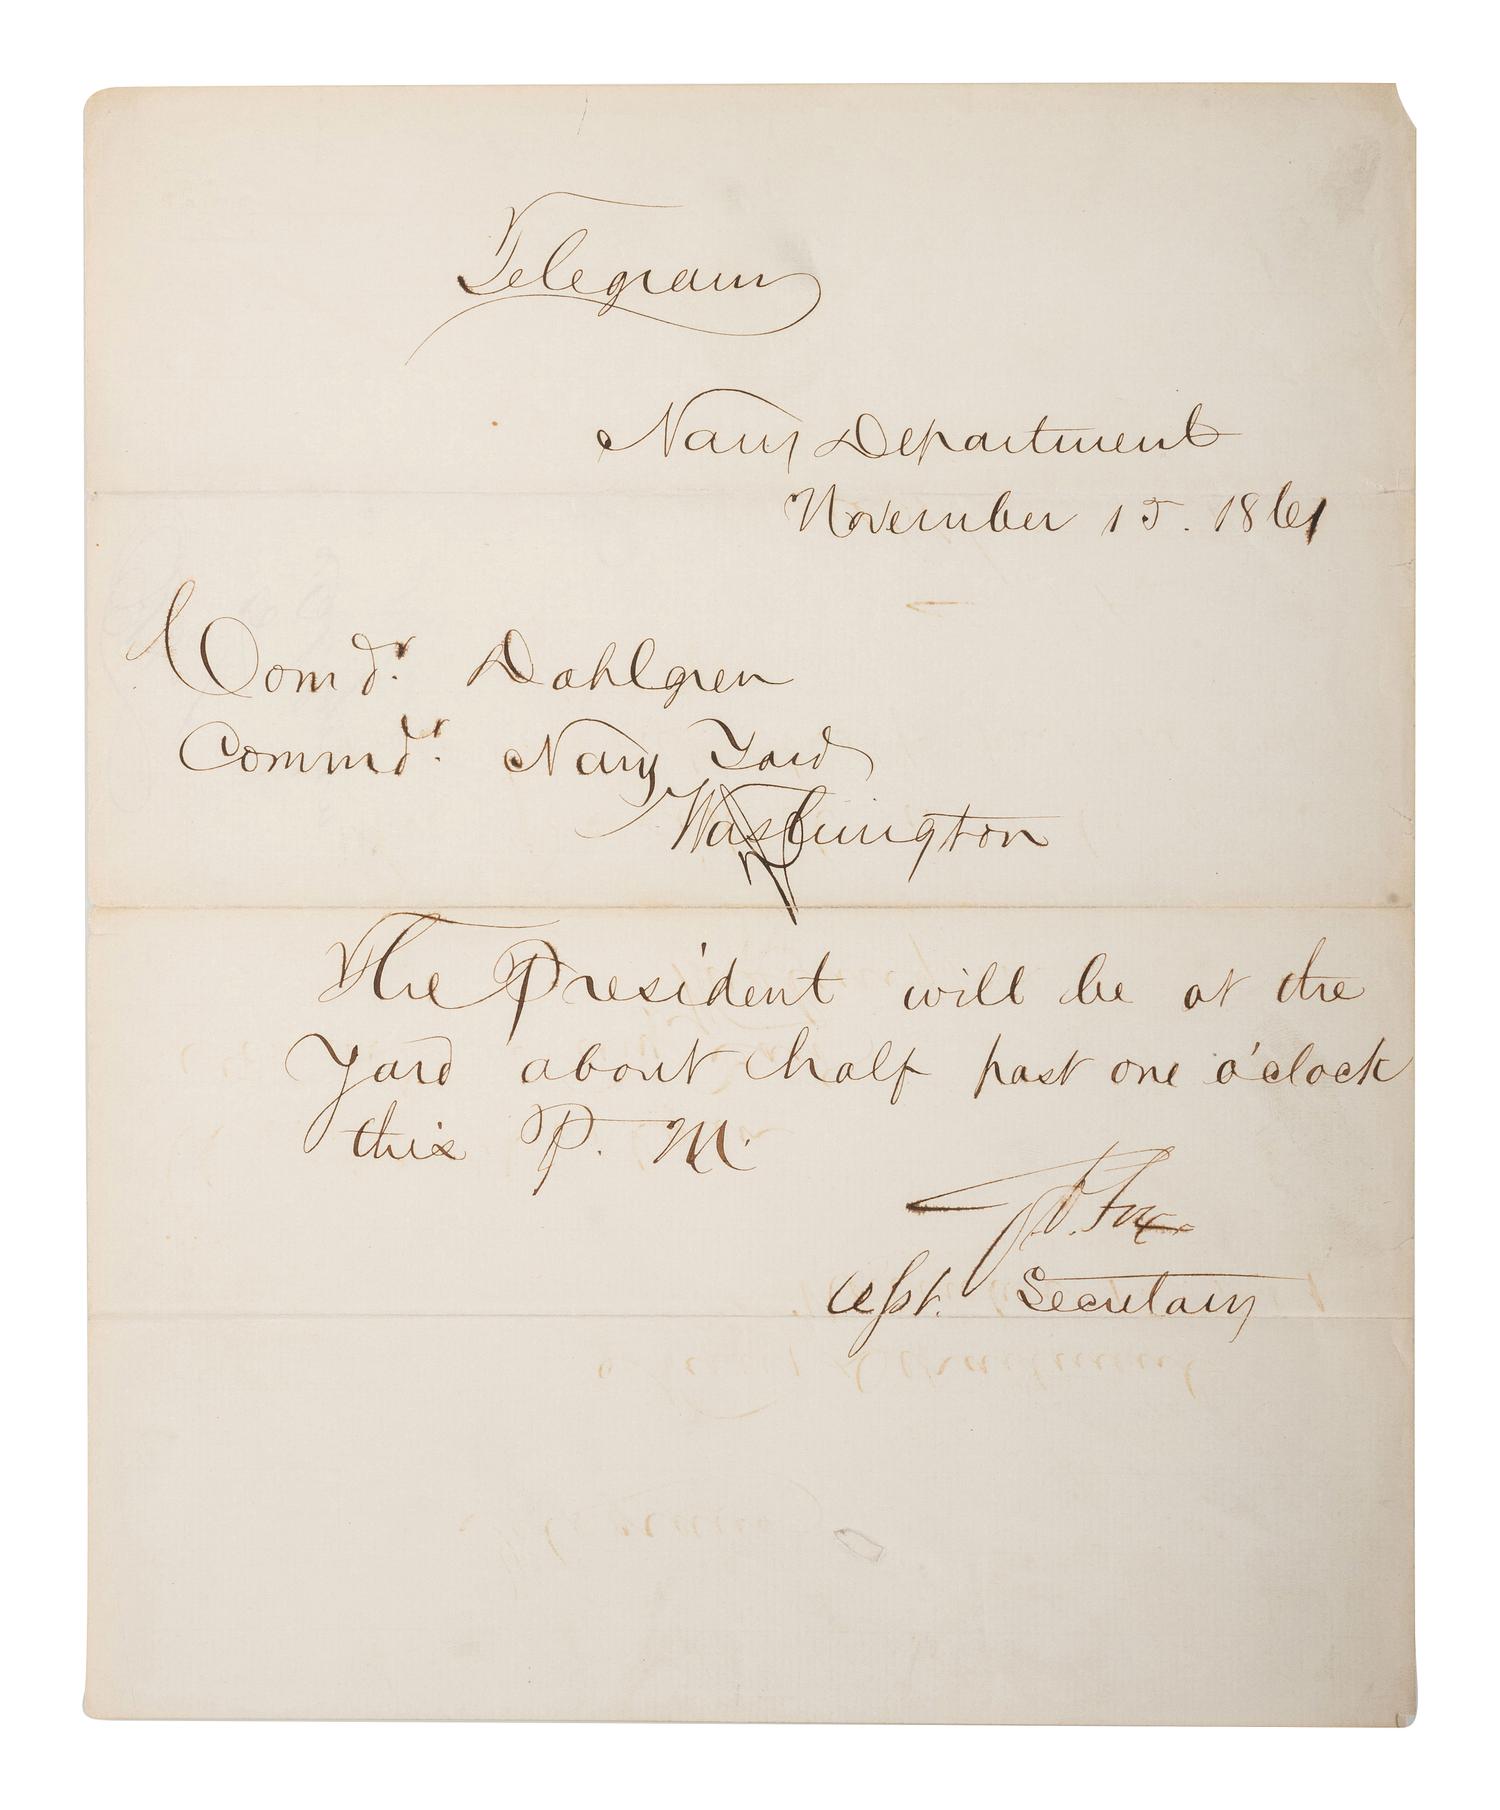 Telegram
Navy Department
November 15. 1861
Comdr. Dahlgren
Commdr. Navy Yard
Washington
The President will be at the
Yard about half past one o'clock
this P. M.
G. V. Fox
Asst. Secretary